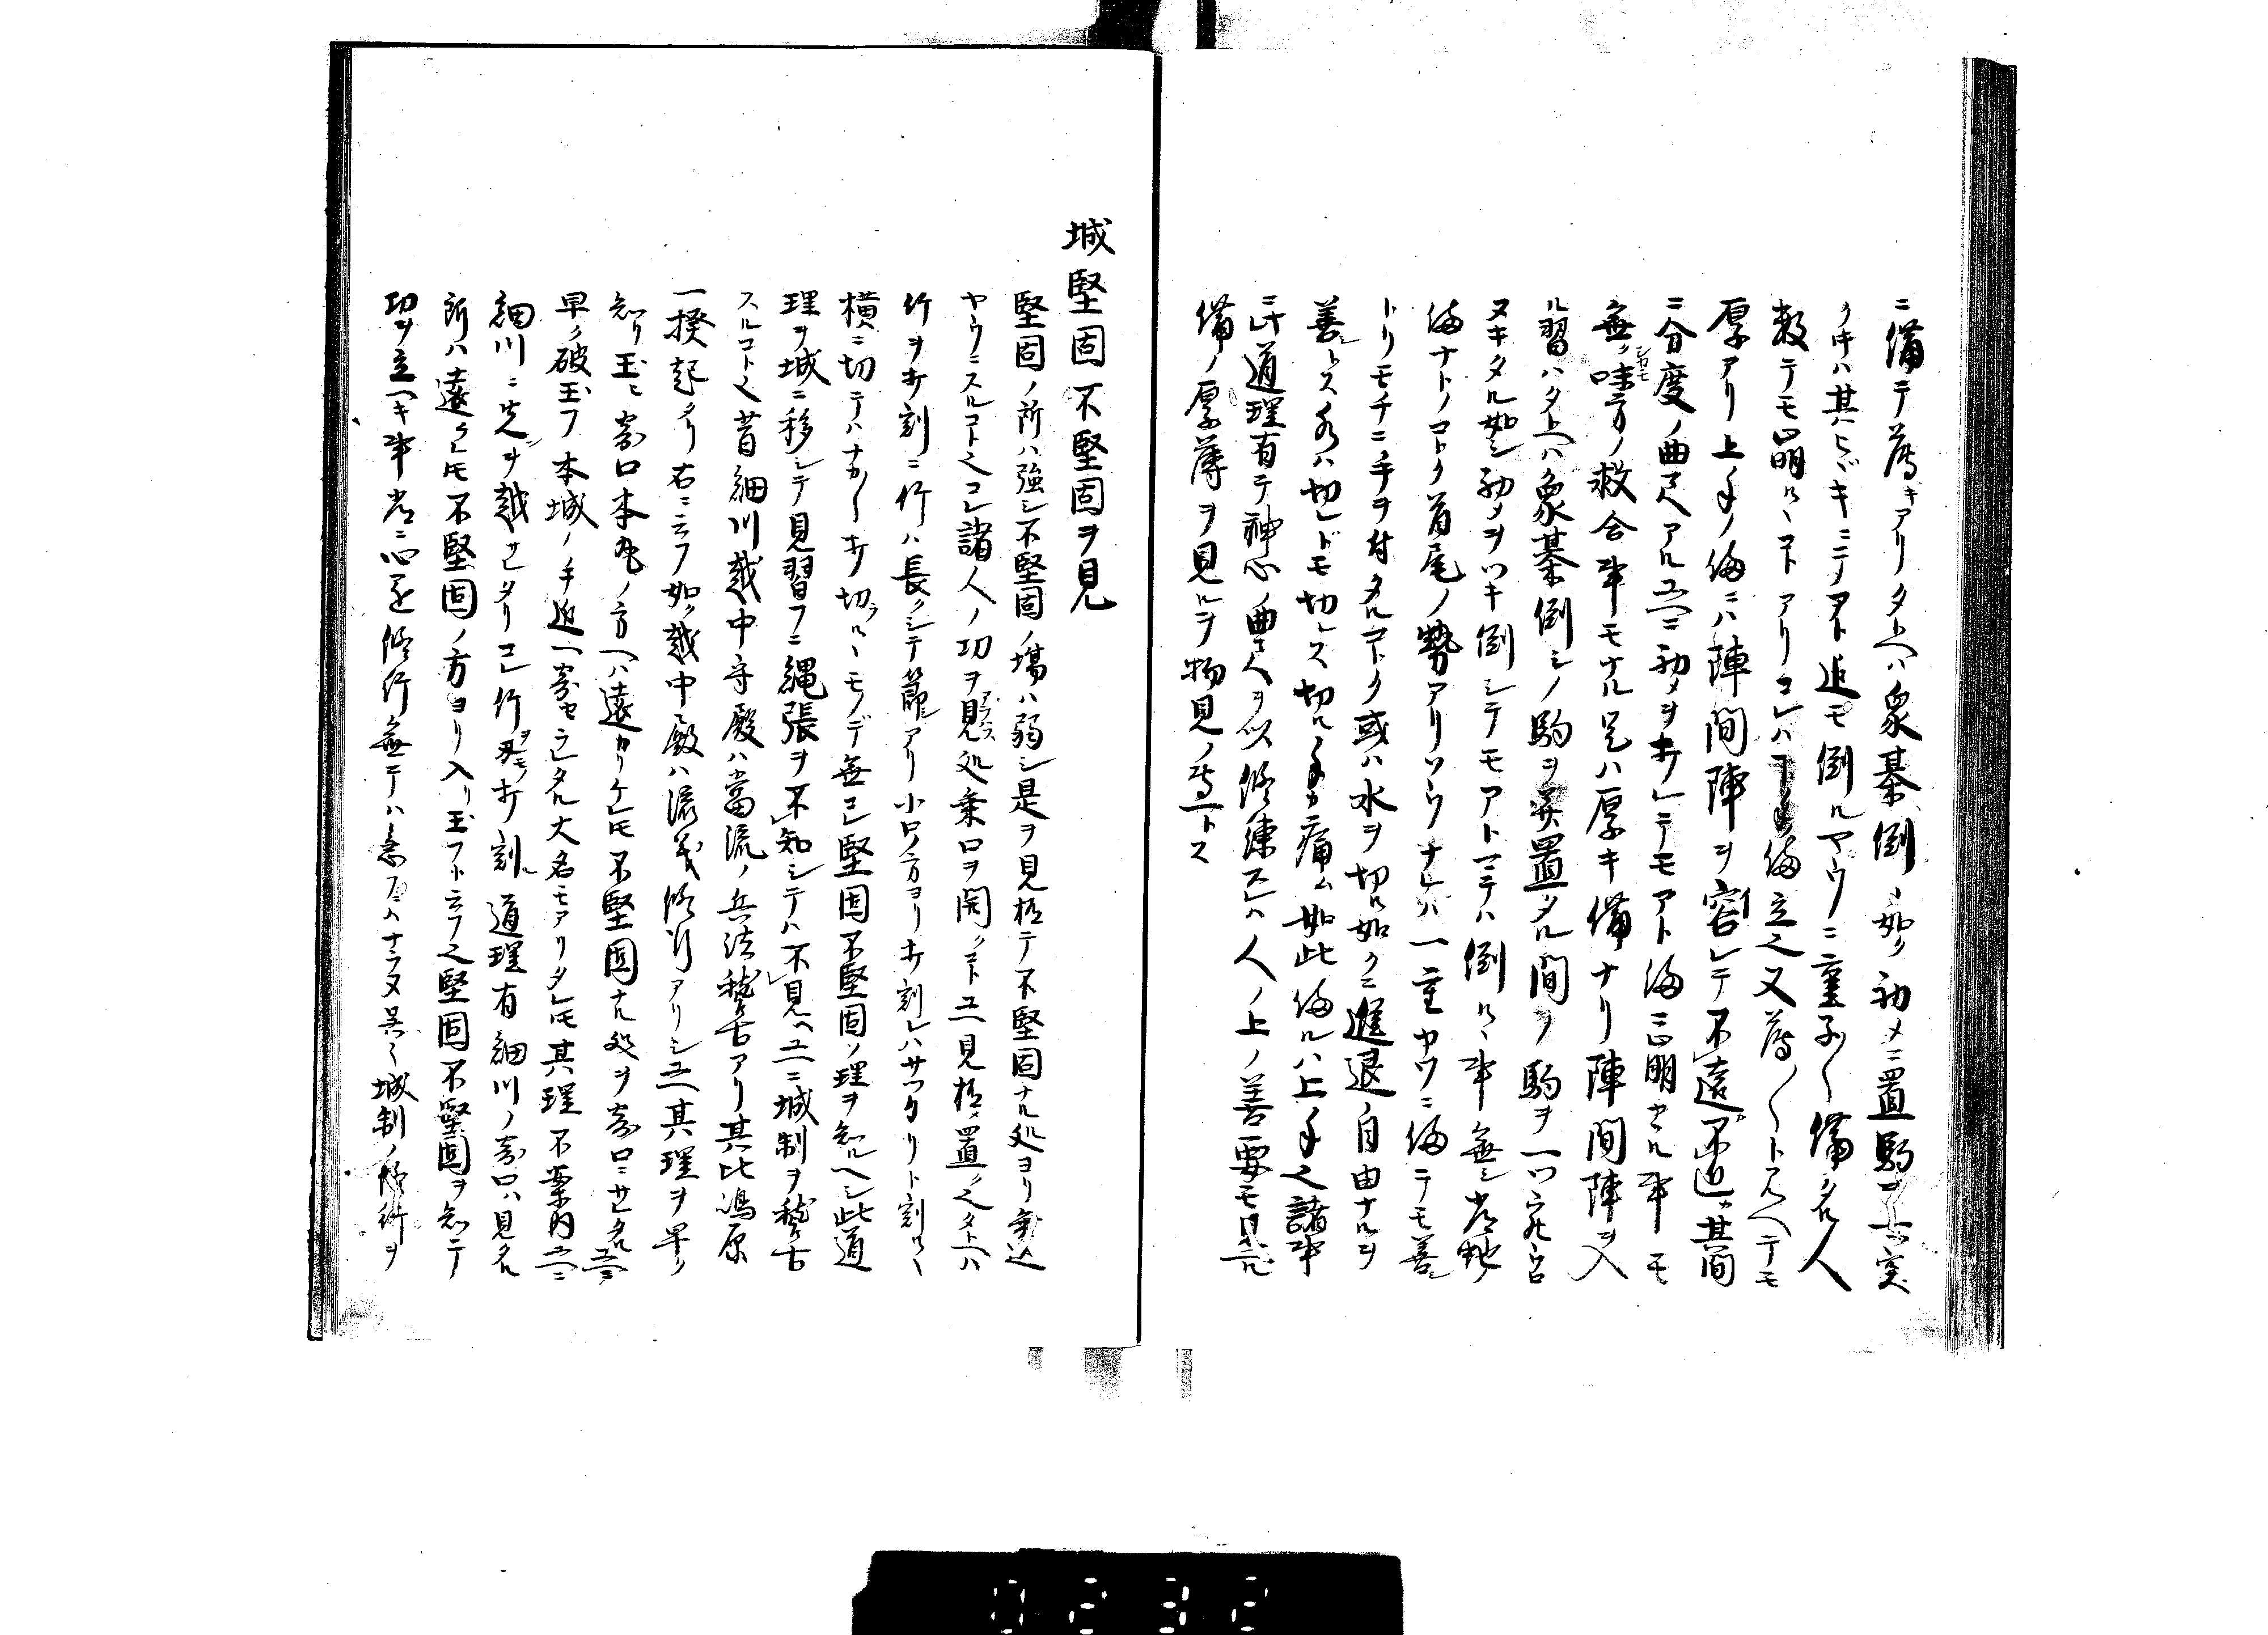 ニ備テ薄キアリタトヘハ象棊倒ノ如ク初メニ置駒ニ突
ク時ハ其ヒビキニテアト迄モ倒ルヤウニ重子〱備タル人
数テモ崩ルヽコトアリコレハ下手ノ備立也又薄〱ト見ヘテモ
厚アリ上手ノ備ニハ陣間陣ヲ容レテ不遠不近其間
ニ分度ノ曲尺アルユヘニ初メヲ打レテモアト備ニ崩サルヽ事モ
無ク味方ノ救合事モナル是ハ厚キ備ナリ陣間陣ヲ入
ル習ハタトヘハ象棊倒シノ駒ヲ置タル間ノ駒ヲ一ツ宛
ヌキタル如シ初メヲツキ倒シテモアトマテハ倒ルヽ事無シ
備ナトノコトク首尾ノ勢アリソウナレハ一重ヤウニ備テモ善
トリモチニ手ヲ付タルコトク或ハ水ヲ切ル如クニ進退ノ自由ナルヲ
善トス水ハ切レドモ切レス切ル手カ痛ム如此備ルハ上手也諸事
ニ此道理有テ神心ノ曲尺ヲ以修練スレハ人ノ上ノ善悪モ見ル
備ノ厚薄ヲ見ルヲ物見ノ専一トス
城堅固不堅固ヲ見
堅固ノ所ハ強シ不堅固ノ場ハ弱シ是ヲ見極テ不堅固ナル処ヨリ乗込
ヤウニスルコト也コレ諸人ノ功ヲ見処乗口ヲ開クコトユヘ見極メ置ク也タトヘハ
竹ヲ打割ニ竹ハ長クシテ節アリ小口ノ方ヨリ打割レハサツクリト割ルヽ
横ニ切テハナカ〱打切ラルヽモノデ無コレ堅固不堅固ノ理ヲ知ルヘシ此道
理ヲ城ニ移シテ見習フニ縄張ヲ不知シテハ不見ヘユヘニ城制ヲ稽古
スルコト也昔細川越中守殿ハ当流ノ兵法稽古アリ其比嶋原
一揆起タリ右ニ云フ如ク越中殿ハ流義修行アリシユヘ其理ヲ早ク
知リ玉ヒ寄口本丸ノ方ヘハ遠カリケレ𪜈不堅固ナル処ヲ寄口ニセラレタルユヘニ
早ク破玉フ本城ノ手近ヘ寄セラレタル大名モアリタレ𪜈其理不案内ユヘニ
細川ニ先ヲ越サレタリコレ竹ヲ打割ル道理有細川ノ寄口ハ見タル
所ハ遠ケレ𪜈不堅固ノ方ヨリ入リ玉フト云フ也堅固不堅固ヲ知テ
功ヲ立ヘキ事常ニ心ヲ修行無テハ急ニハナラヌ呉〱城制ノ修行ヲ